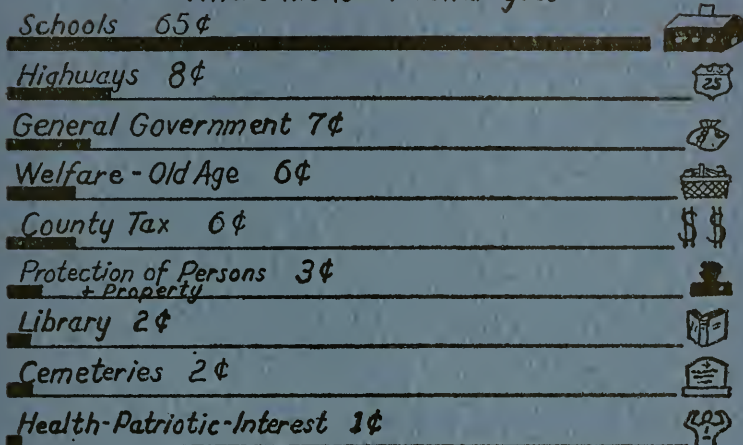 Schools 65¢
Highways 8¢
U.S.
25
General Government 7¢
Welfare - Old Age 6¢
County Tax 6¢
$ $
Protection of Persons 3¢
+ Property
Library 2¢
Cemeteries 2¢
Health-Patriotic-Interest 1¢